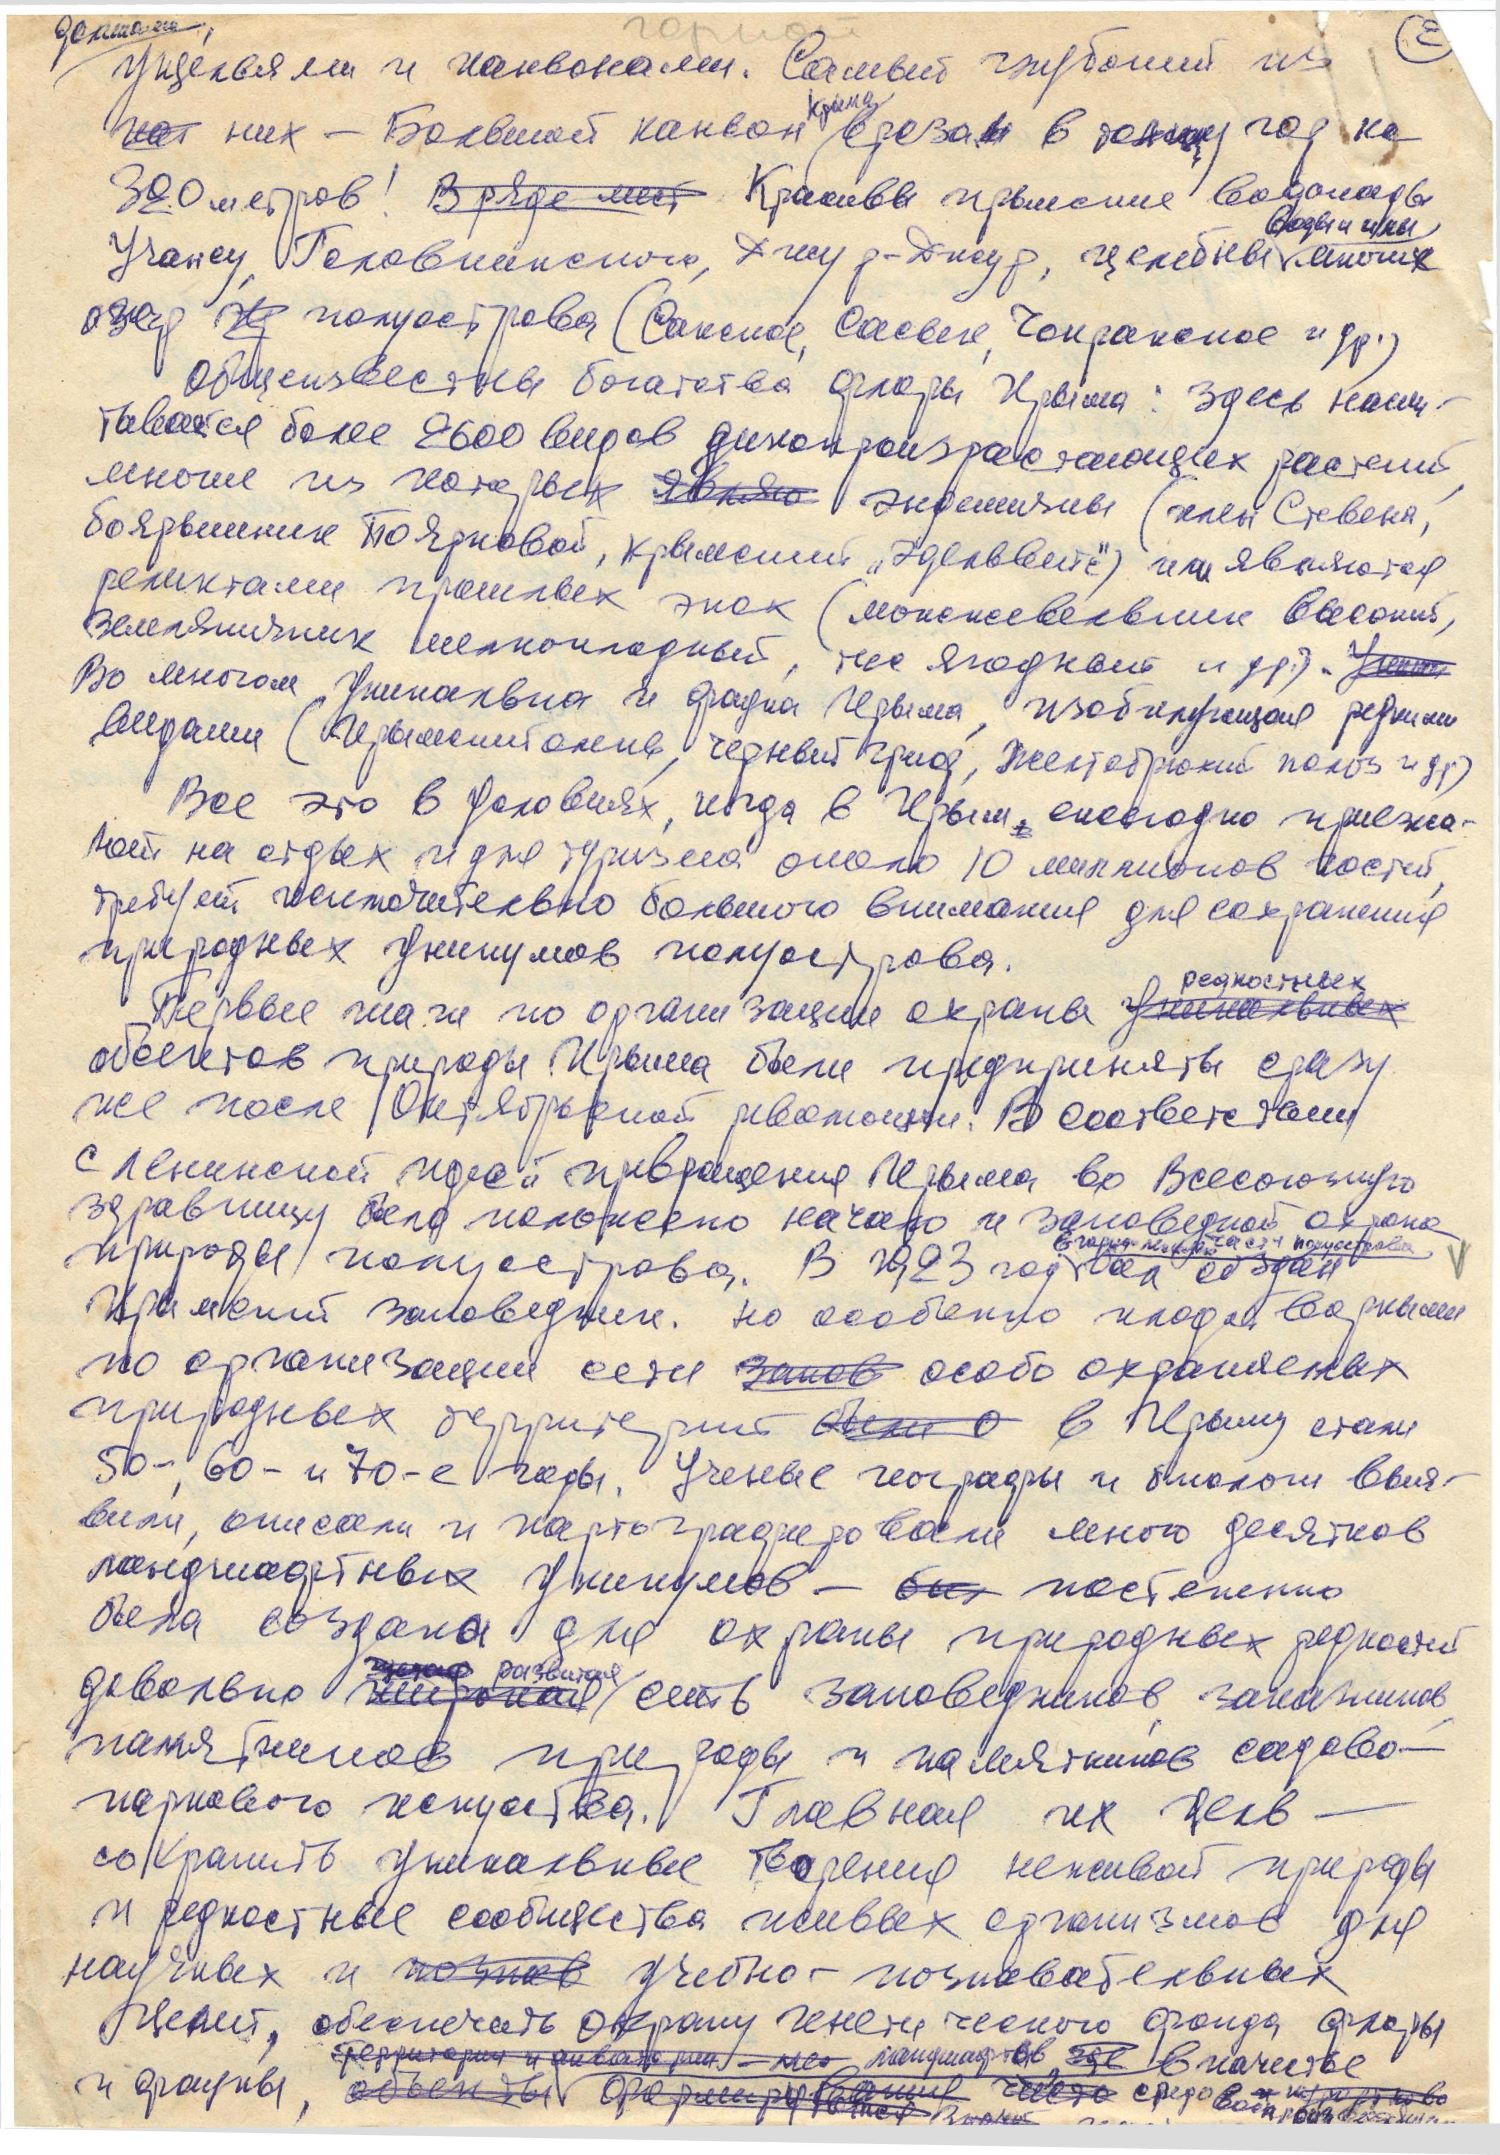 горной
долинами,
ущельями и каньонами. Самый глубокий из
них – Большой каньон Крыма врезан в толщу гор на
320 метров! В ряде мест Красивы крымские водопады
Учансу, Головкинского, Джур-Джур, целебны воды и илы многих
озер полуострова (Сакское, Сасык, Чокракское и др.)
Общеизвестны богатства флоры Крыма: здесь насчи-
тывается более 2600 видов дикопроизрастающих растений,
многие из которых явля эндемичны (клен Стевена,
боярышник Поярковой, крымский „эдельвейс") или являются
реликтами прошлых эпох (можжевельник высокий,
земляничник мелкоплодный, тис ягодный и др.).
Во многом уникальна и фауна Крыма, изобилующая редкими
видами (Крымский олень, черный гриф, Желтобрюхий полоз и др)
Все это в условиях, когда в Крым ежегодно приезжа-
ют на отдых и для туризма около 10 миллионов гостей,
требует исключительно большого внимания для сохранения
природных уникумов полуострова.
Первые шаги по организации охраны уникальных редкостных
объектов природы Крыма были предприняты сразу
же после Октябрьской революции. В соответствии
с ленинской идеей превращения Крыма во Всесоюзную
здравницу было положено начало и заповедной охране
природы полуострова. В 1923 году в горно-лесной части полуострова был создан
Крымский заповедник. Но особенно плодотворными
по организации сети запов особо охраняемых
природных территорий были в Крыму стали
50-, 60- и 70-е годы. Ученые географы и биологи выя-
вили, описали и картографировали много десятков
ландшафтных уникумов – был постепенно
была создана для охраны природных редкостей
довольно широкая развитая сеть заповедников, заказников,
памятников природы и памятников садово-
паркового искусства. Главная их цель –
сохранить уникальные творения неживой природы
и редкостные сообщества живых организмов для
научных и познав учебно-познавательных
целей, обеспечить охрану генетического фонда флоры
территории и акватории ландшафтов в качестве
и фауны, объекты